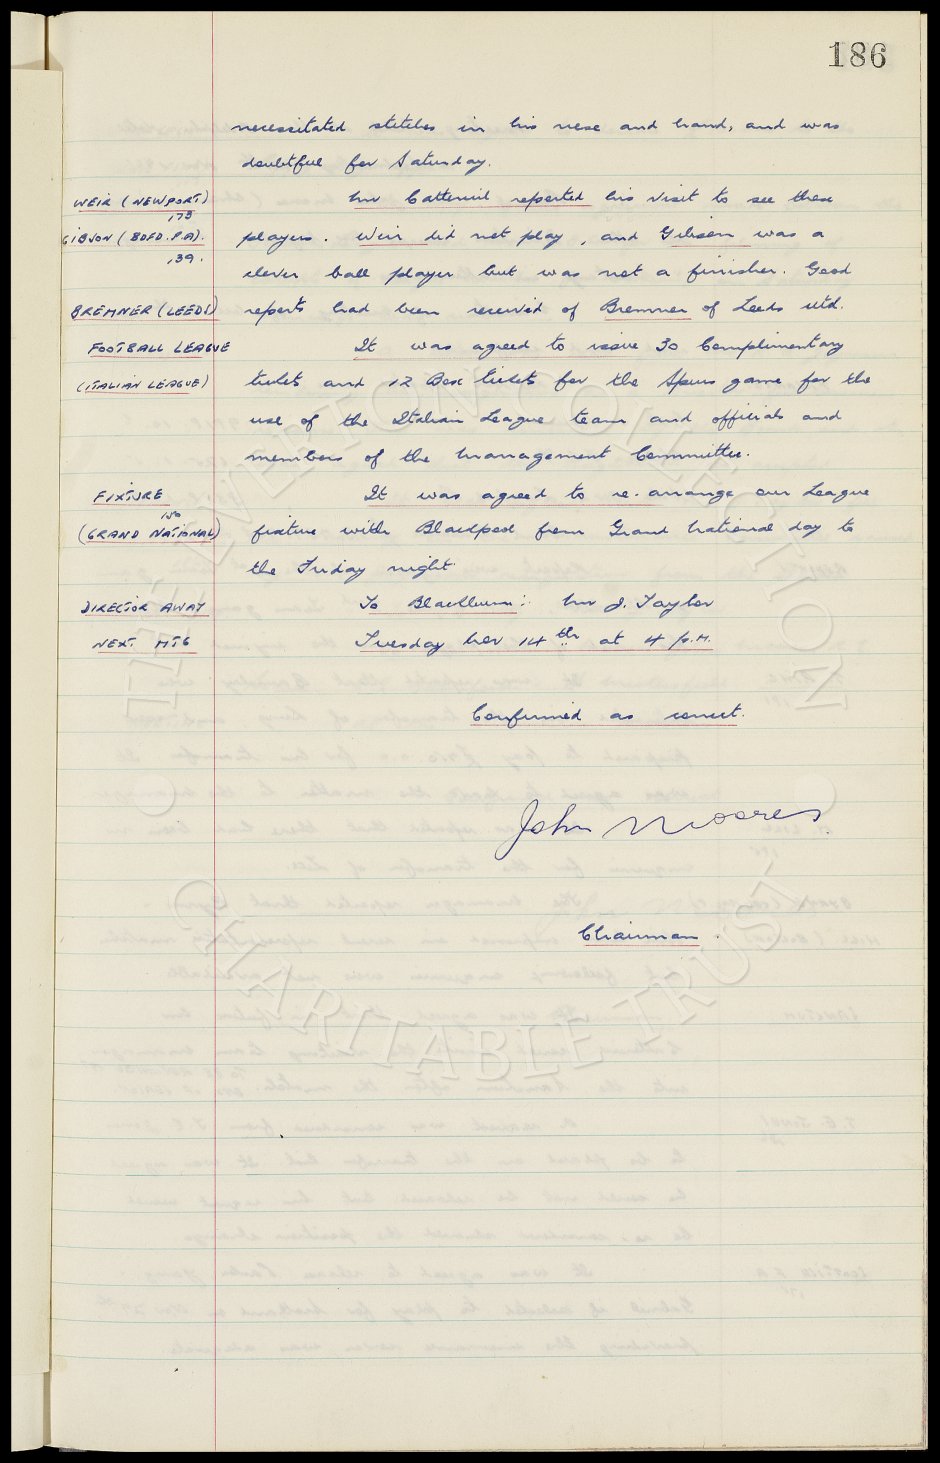 186
necessitated stitches in his nose and hand, and was
doubtful for Saturday.
WEIR (NEWPORT) Mr Catterick reported his visit to see these
178
GIBSON (BDFD. P.A). players. Weir did not play, and Gibson was a
139.
clever ball player but was not a finisher. Good
BREMNER (LEEDS) reports had been received of Bremner of Leeds Utd.
FOOTBALL LEAGUE It was agreed to issue 30 Complimentary
(ITALIAN LEAGUE) tickets and 12 Box tickets for the Spurs game for the
use of the Italian League team and officials and
members of the Management Committee.
FIXTURE It was agreed to re-arrange our League
180
(GRAND NATIONAL) fixture with Blackpool from Grand National day to
the Friday night.
DIRECTOR AWAY To Blackburn: Mr J. Taylor
NEXT MTG Tuesday Nov 14th at 4 p.m.
Confirmed as correct.
John Moores
Chairman.
THE EVERTON COLLECTION
CHARITABLE TRUST